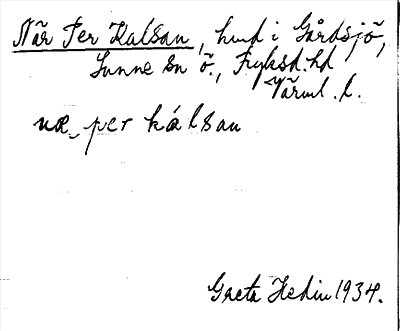 När Per Kalsan, hmd i Gårdsjö,
Sunne sn ö., Fryksd. hd
Värml. l.
næ per kálsan
Greta Hedin 1934.